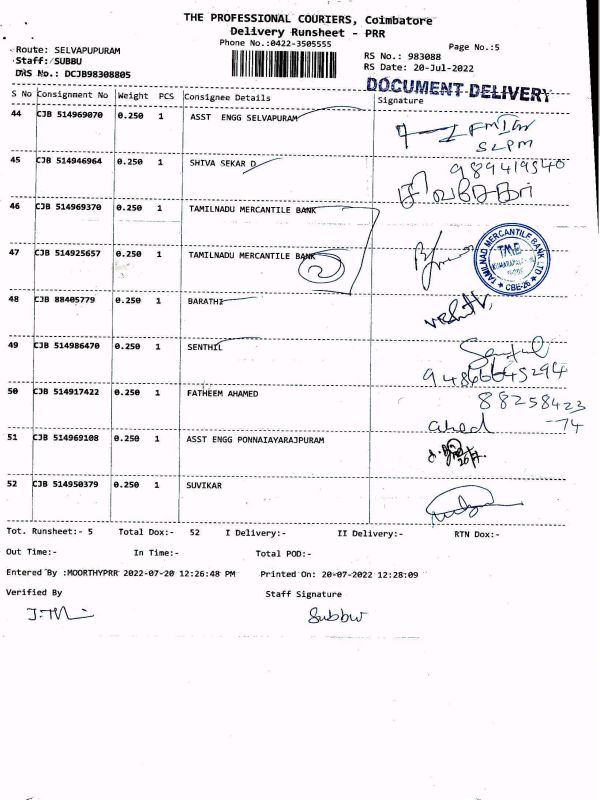 THE PROFESSIONAL COURIERS, Coimbatore
Delivery Runsheet - PRR
Phone No.:0422-3505555
Page No.:5
Route: SELVAPUPURAM
Staff: SUBBU
DRS No.: DCJB98308805
RS No.: 983088
RS Date: 20-Jul-2022
DOCUMENT DELIVERY
S No Consignment No Weight PCS Consignee Details Signature
44 CJB 514969070 0.250 1 ASST ENGG SELVAPURAM
SLPM
45 CJB 514946964 0.250 1 SHIVA SEKAR D
9894419540
46 CJB 514969370 0.250 1 TAMILNADU MERCANTILE BANK
47 CJB 514925657 0.250 1 TAMILNADU MERCANTILE BANK
2
TAMILNAD MERCANTILE BANK LTD
TMB
CBE-26
48 CJB 88405779 0.250 1 BARATHI
49 CJB 514986470 0.250 1 SENTHIL
50 CJB 514917422 0.250 1 FATHEEM AHAMED
88258423
-74
ahed
51 CJB 514969108 0.250 1 ASST ENGG PONNAIAYARAJPURAM
52 CJB 514950379 0.250 1 SUVIKAR
Tot. Runsheet:- 5 Total Dox:- 52 I Delivery:- II Delivery:- RTN Dox:-
Out Time:- In Time:- Total POD:-
Entered By :MOORTHYPRR 2022-07-20 12:26:48 PM Printed On: 20-07-2022 12:28:09
Verified By Staff Signature
Subbu